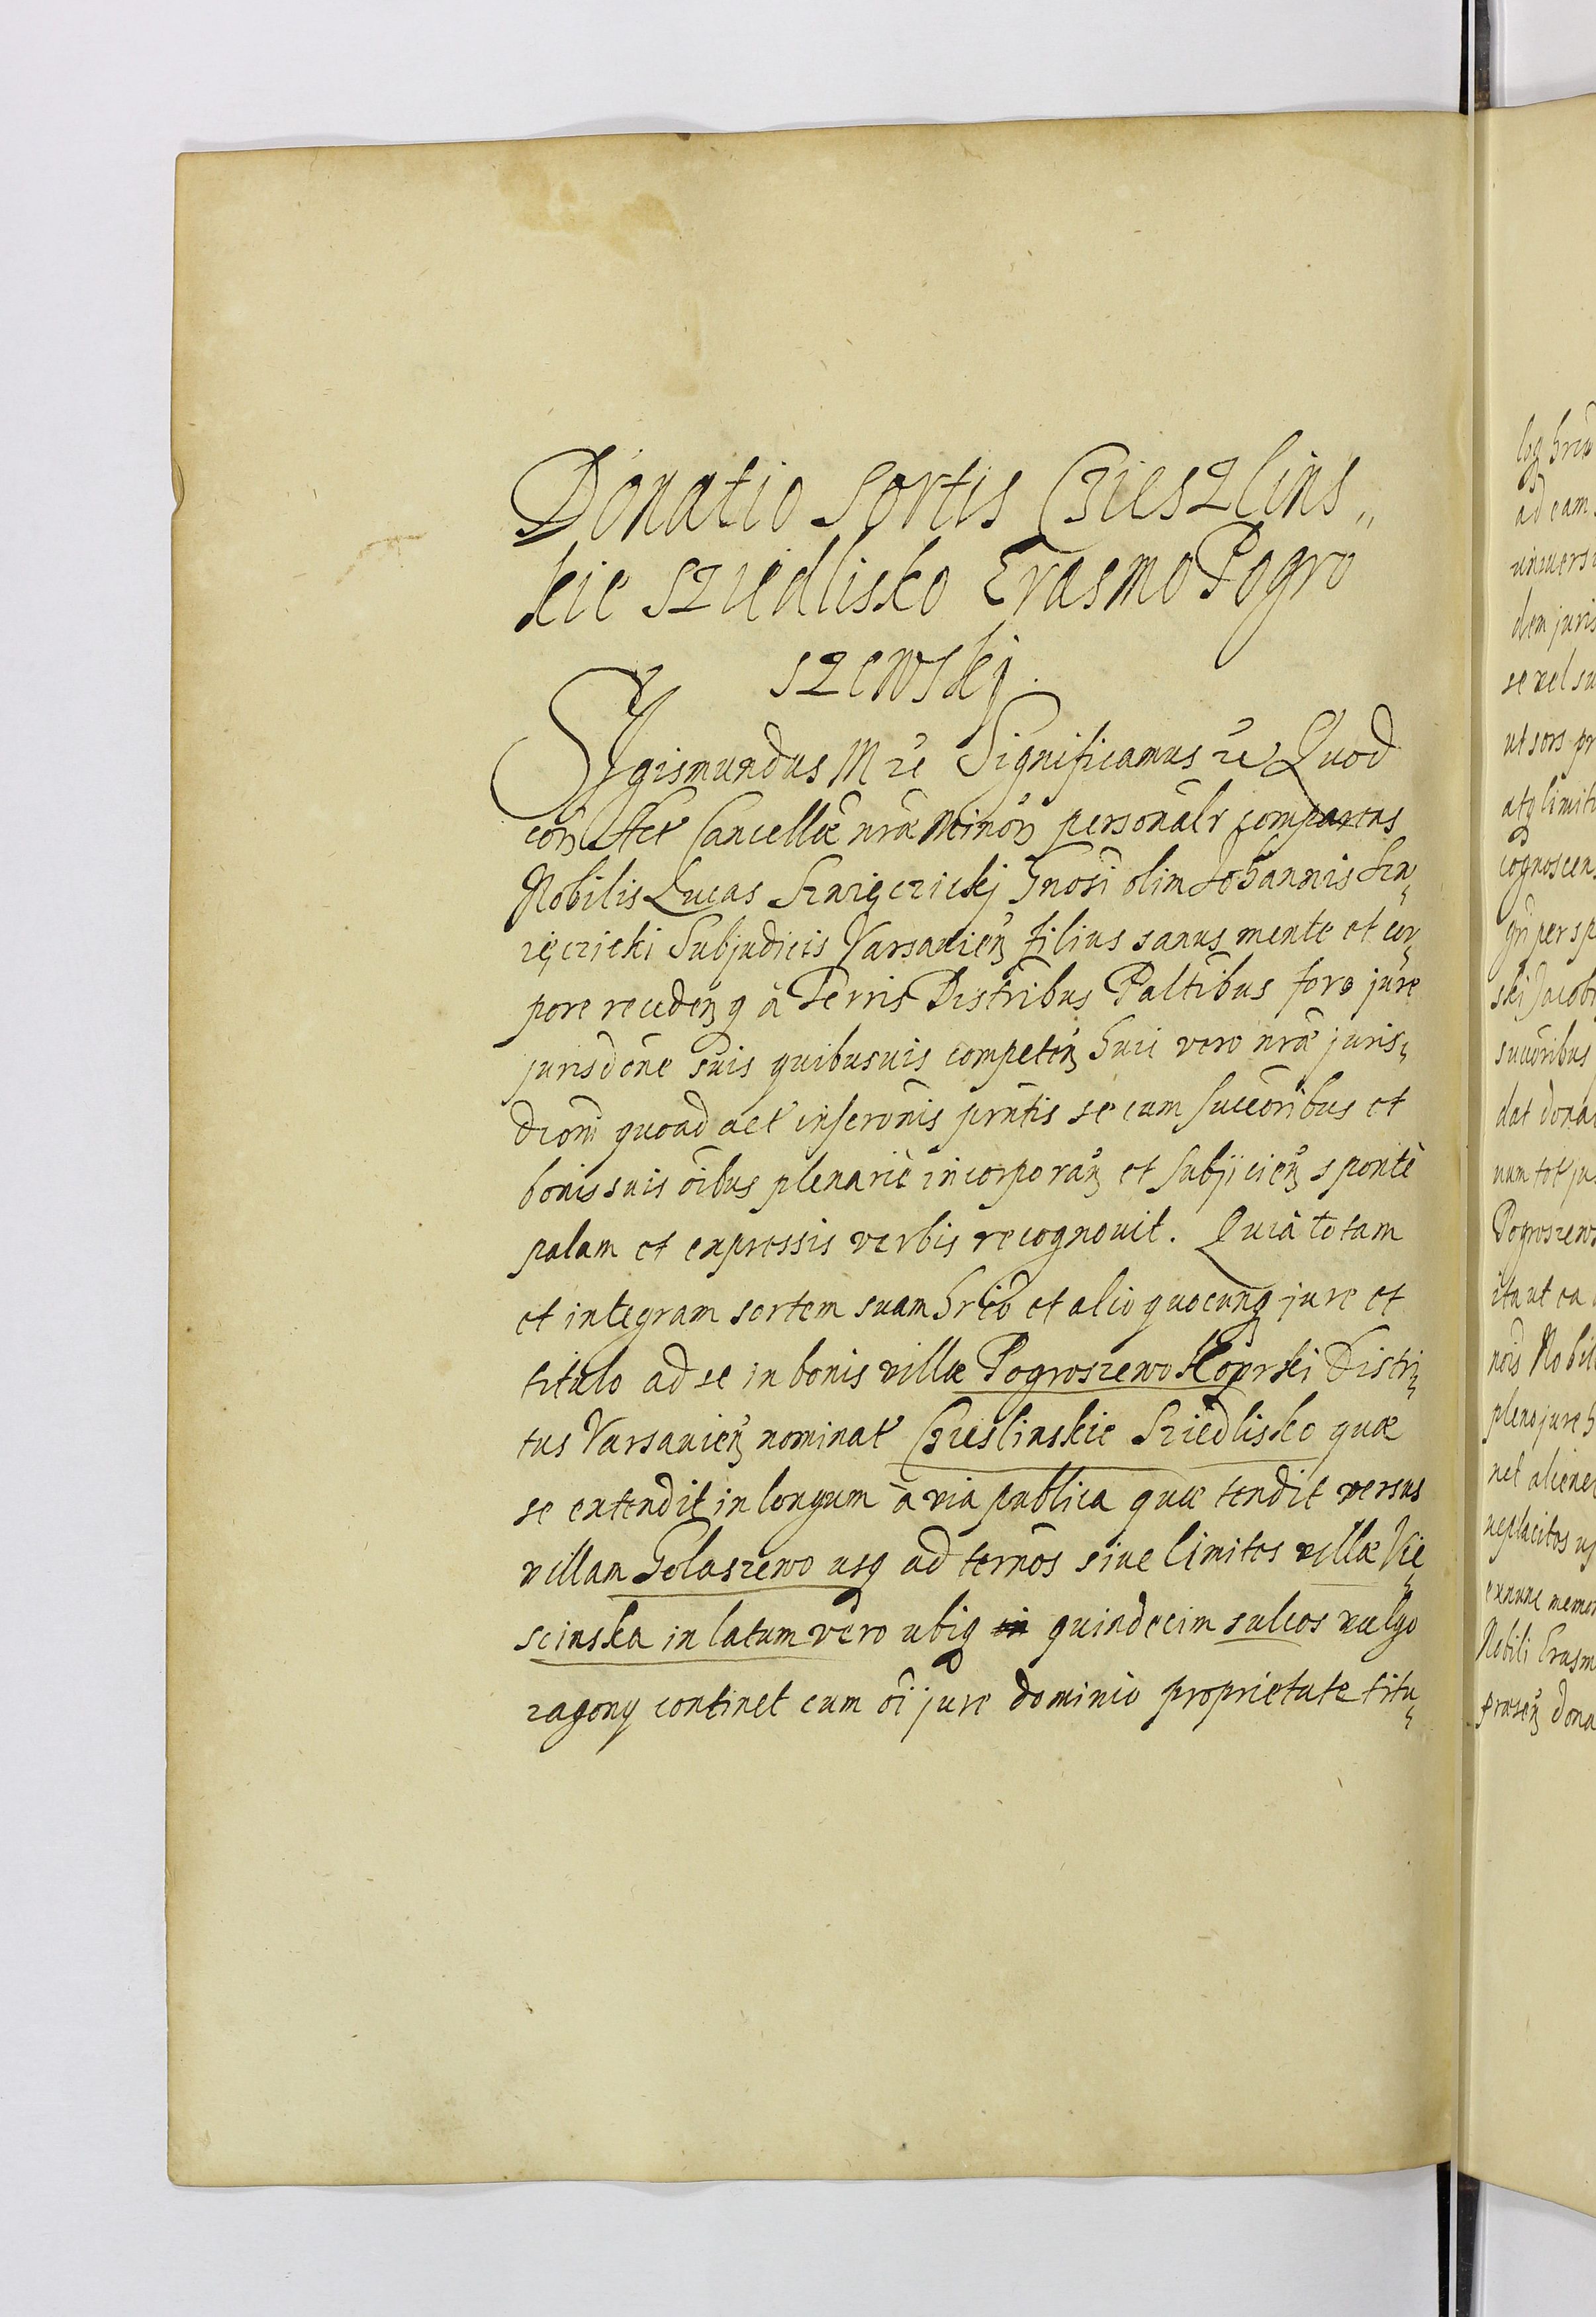 Donatio Sortis Czieszlins„
kie Sziedlisko Erasmo Pogro
szewskj.
Sigismundus III rc Significamus rc Quod
corā Act Cancellæ nrāe Minori personalr comparens
Nobilis Lucas Szwięczickj Gnosi olim Johannis Szw
ięczicki Subjudicis Varsavien filius sanus mente et cor
pore recedenq à Terris Districtibus Palatibus foro jure
jurisdone suis quibusvis competen huic vero nrāe juris
dioni quoad act inserōnis prntis se cum succōribus et
bonis suis oībus plenariè incorporan et subjicien spontè
palam et expressis verbis recognovit. Quia totam
et integram sortem suam hrio et alio quocunq jure et
titulo ad se in bonis villæ Pogroszewo Koprki Distri
tus Varsavien nominat Czieslinskie Sziedlisko quæ
se extendit in longum à via publica quæ tendit versus
villam Golaszewo usq ad ternōs sive limites villæ Vie
scinska in latum vero ubiq quindecim sulcos vulgo
zagony continet cum oī jure dominio proprietate titu
ad eam
dem juris
se vel su
ut sors pr
succōribus
num tot ju
Pogroszews
ita ut ea
Nobili Erasm